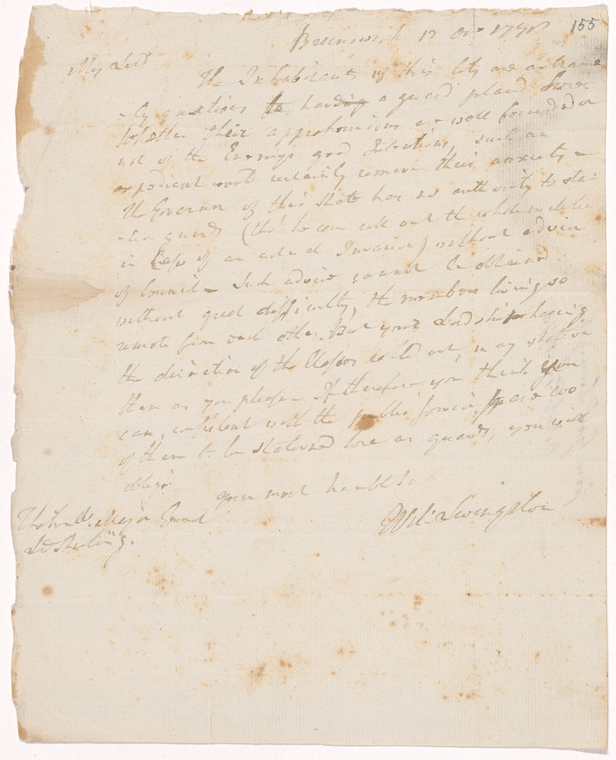 155
Brunswick 12 Oct 1778
My Lord
The Inhabitants of this City are extreme
-ly anxious having a guard placed here.
Whether their apprehensions are well founded or
not of the Enemys good Intentions, such an
expedient woud certainly remove their anxiety -
The Governor of this State has no authority to sta-
-tion guards (tho' he can call out the whole militia
in Case of an actual Invasion) without advice
of Council - Such advice cannot be obtained
without great difficulty, the members living so
remote from each other. But your Lordship having
the direction of the Classes called out, may station
them as you please - If therefore you think you
can, consistent with the public service, two
of them to be stationed here as guards, you will
oblige
your most humble St
Wil: Livingston
The Honble Major General
Ld Sterling.